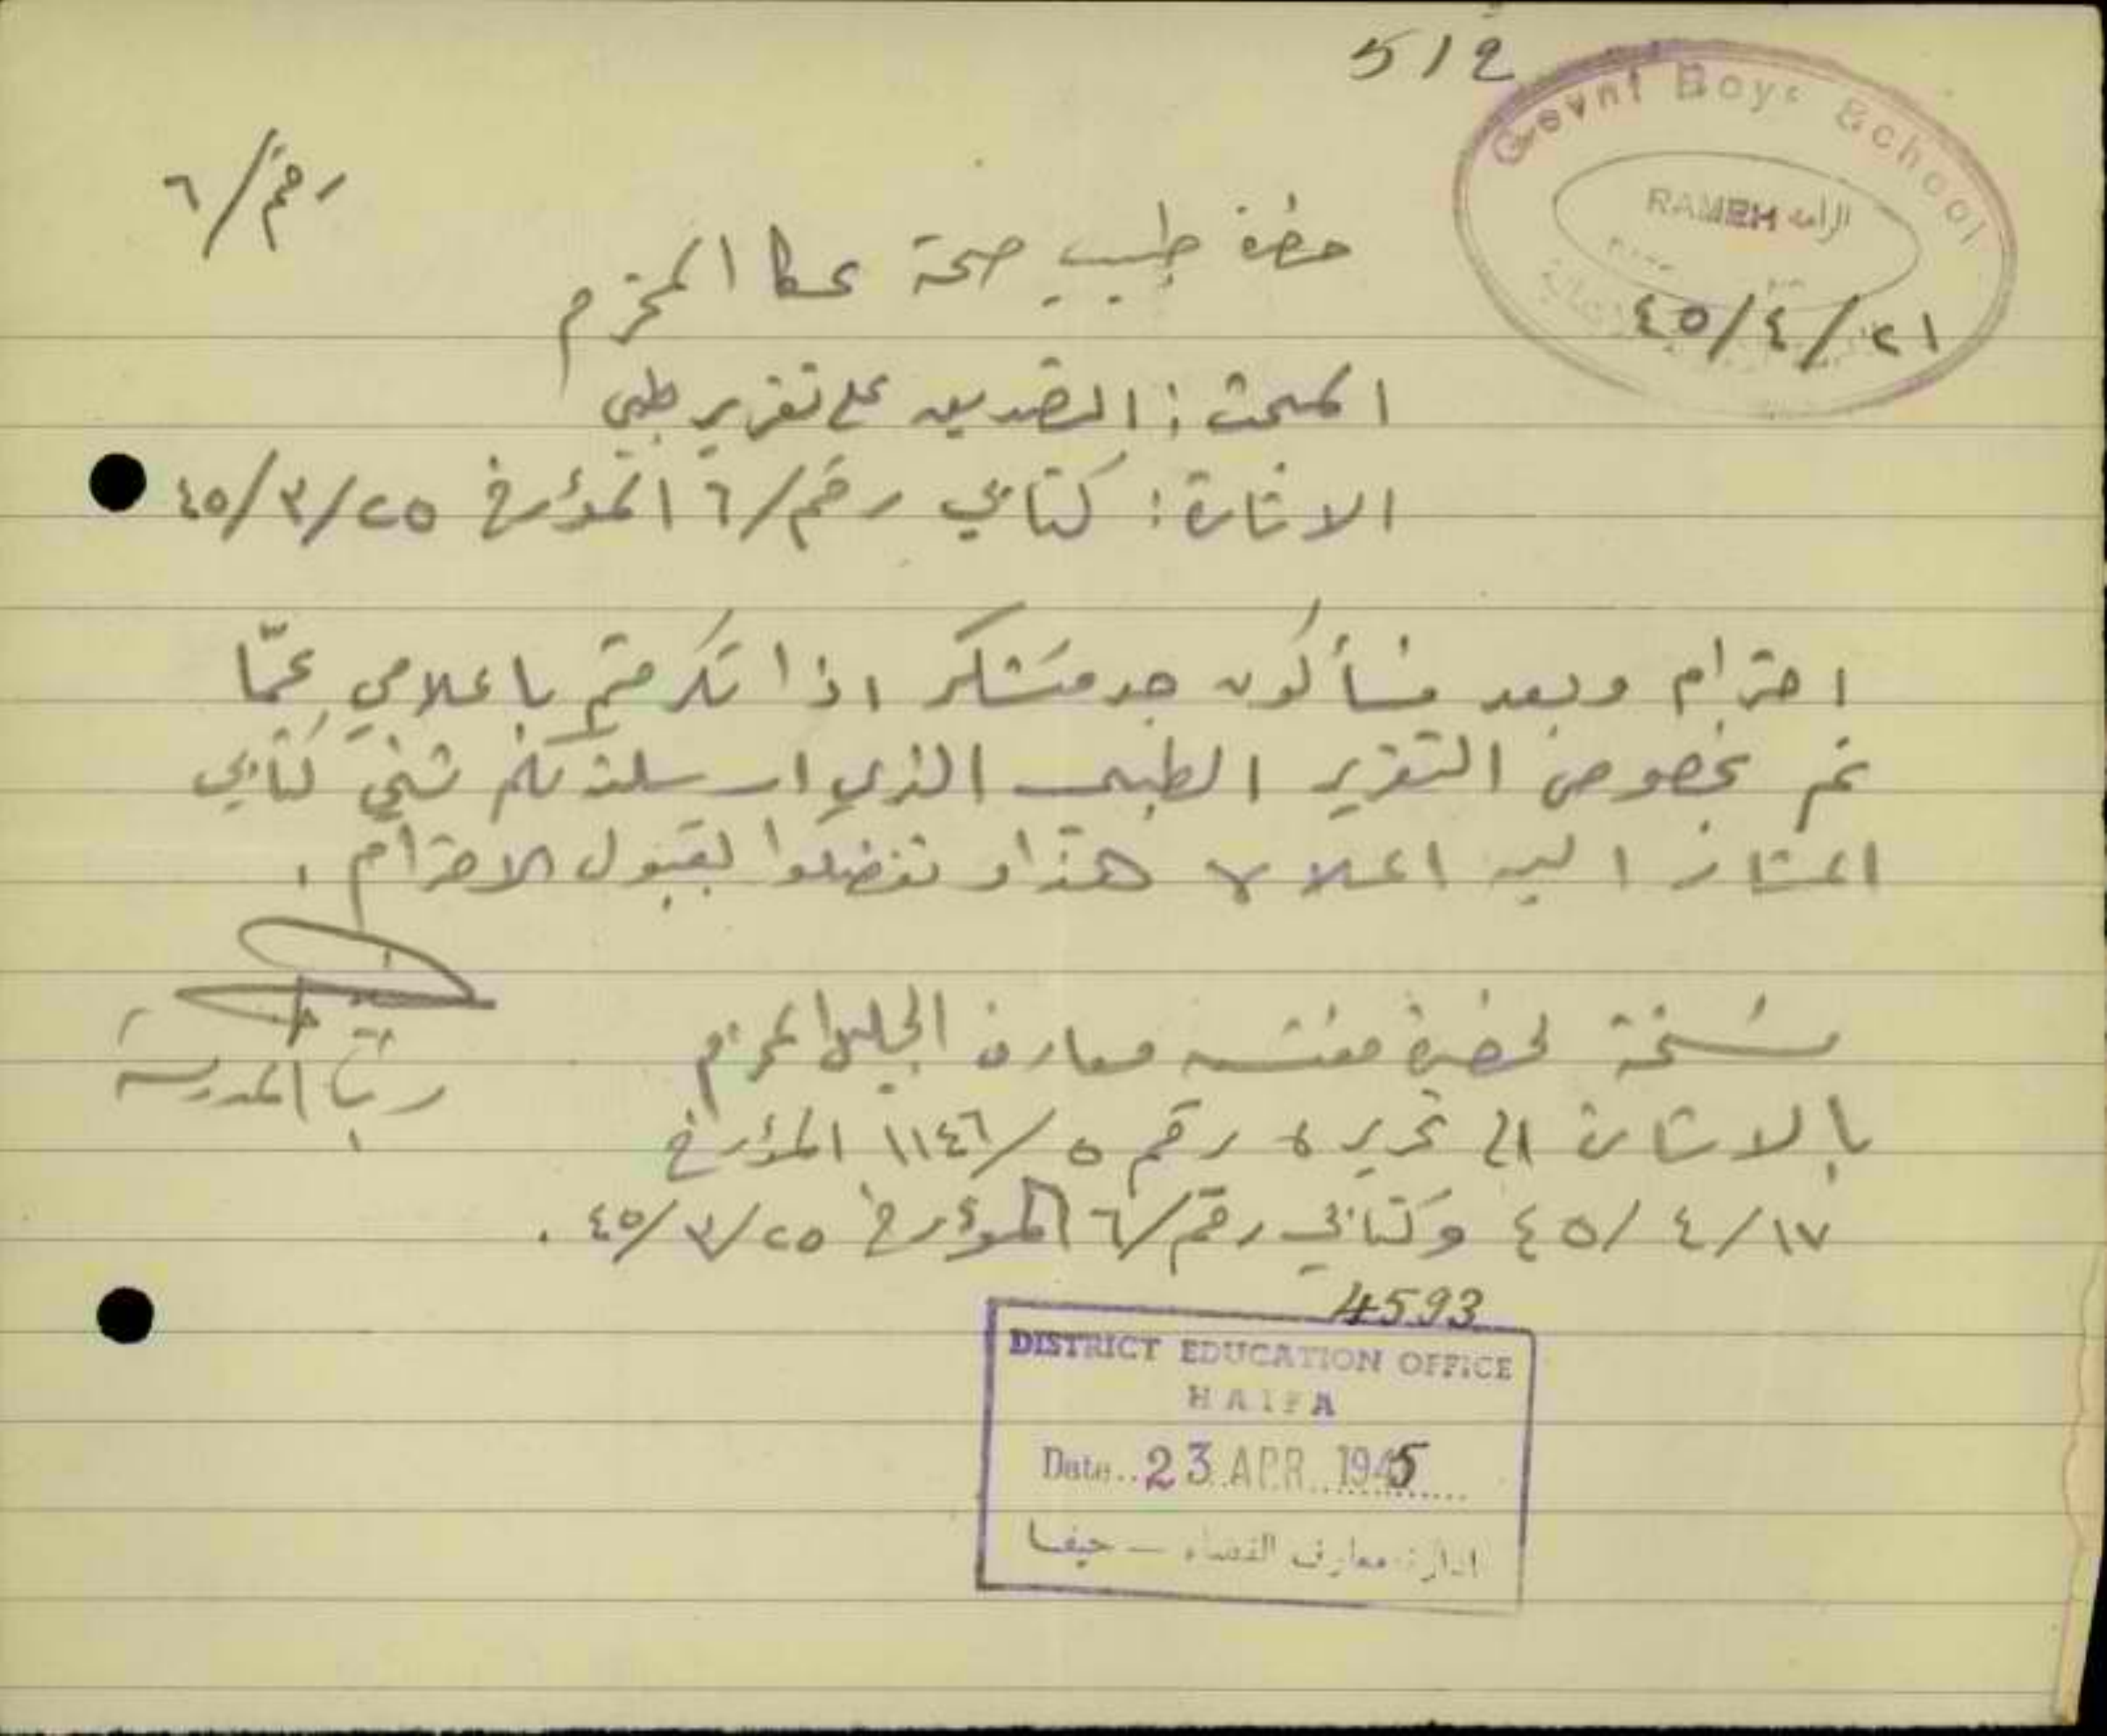 5/2
Govnt Boys School
RAMEH الرامه
٢١/٤/٤٥
رقم/٦
حضرة طبيب صحة عكا المحترم
المبحث: التصديق على تقرير طبي
الاشارة: كتابي رقم/٦ المؤرخ ٢٥/٣/٤٥
احترام وبعد فسأكون جد متشكر اذا تكرمتم باعلامي عمّا
تم بخصوص التقرير الطبي الذي ارسلته لكم ضمن كتابي
المشار اليه اعلاه هذا وتفضلوا بقبول الاحترام.
المدرسة
نسخة لحضرة مفتش معارف الجليل المحترم
بالاشارة الى تحريره رقم ٥/١١٤٦ المؤرخ
١٧/٤/٤٥ وكتابي رقم/٦ المؤرخ ٢٥/٣/٤٥.
4593
DISTRICT EDUCATION OFFICE
HAIFA
Date.. 23 APR 1945
ادارة معارف القضاء — حيفا